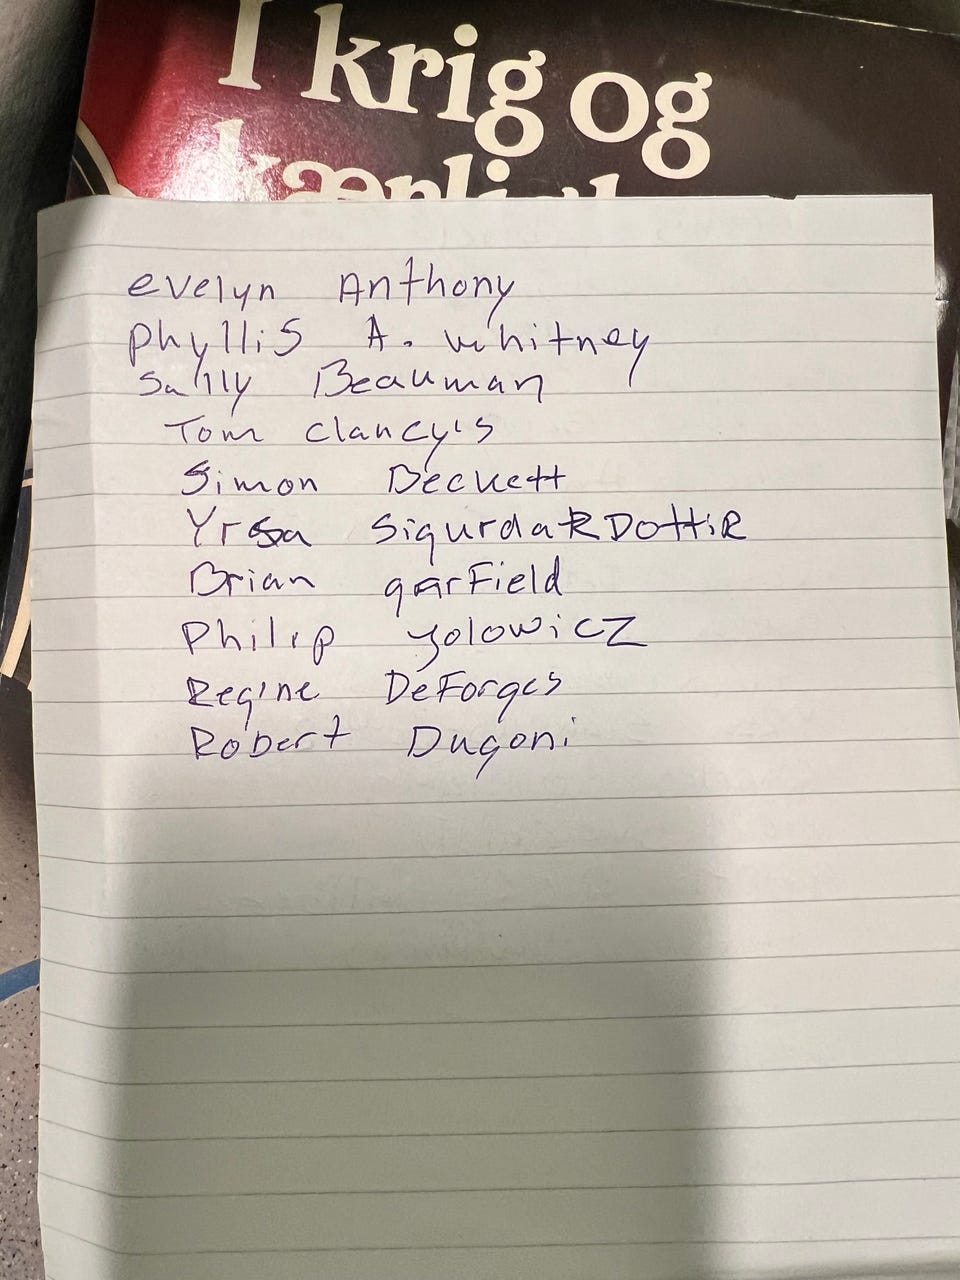 I krig og
evelyn Anthony
Phyllis A. whitney
Sally Beauman
Tom clancy's
Simon Beckett
Yrsa SiqurdaRDottiR
Brian qarField
Philip yolowicz
Regine DeForges
Robert Dugoni